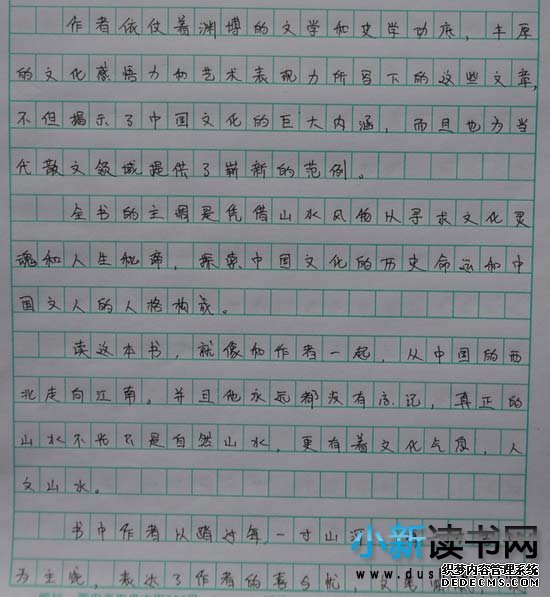 作者依仗着渊博的文学和史学功底，丰厚
的文化感悟力和艺术表现力所写下的这些文章，
不但揭示了中国文化的巨大内涵，而且也为当
代散文领域提供了崭新的范例。
全书的主调是凭借山水风物以寻求文化灵
魂和人生秘谛，探索中国文化的历史命运和中
国文人的人格构成。
读这本书，就像和作者一起，从中国的西
北走向江南。并且他永远都没有忘记，真正的
山水不光只是自然山水，更有着文化气息，人
文山水。
书中作者以踏过每一寸山
为主线，表达了作者的喜与忧，
小新读书网
www.dus